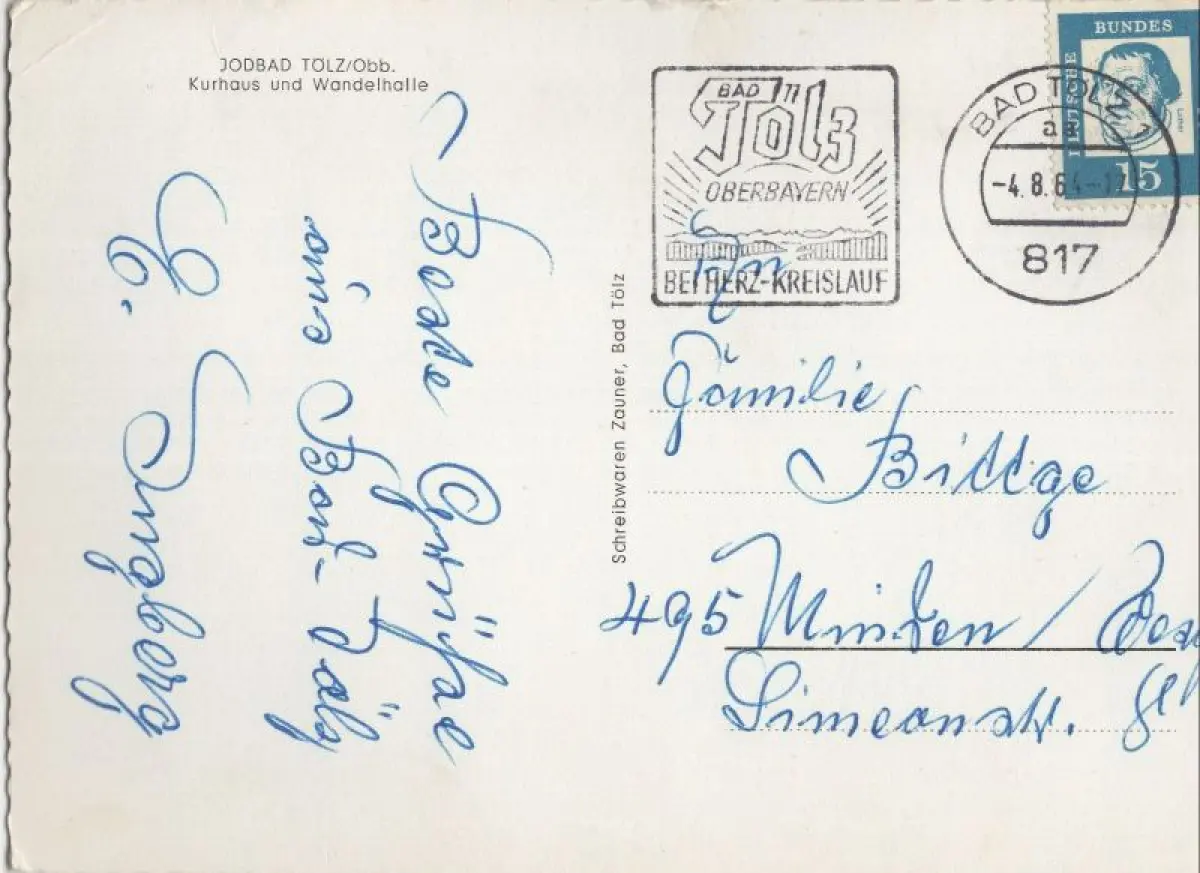 JODBAD TÖLZ/Obb.
Kurhaus und Wandelhalle
Beste Grüße
aus Bad-Tölz
E.
Ingeborg
Schreibwaren Zauner, Bad Tölz
BAD
Tölz
OBERBAYERN
BEI HERZ-KREISLAUF
BAD TÖLZ 1
-4.8.64-
817
DEUTSCHE BUNDES
Luther
15
An
Familie
Bittge
495 Minden/
Simeonstr.